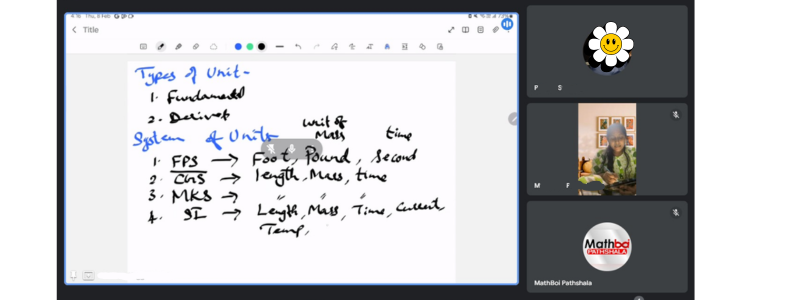 Title
Types of Unit-
1. Fundamental
2. Derived
System of Units
unit of Mass
time
1. FPS → Foot, Pound, Second
2. CGS → length, Mass, time
3. MKS → " " "
4. SI → Length, Mass, Time, Current
Temp,
P S
M F
Mathboi
PATHSHALA
MathBoi Pathshala